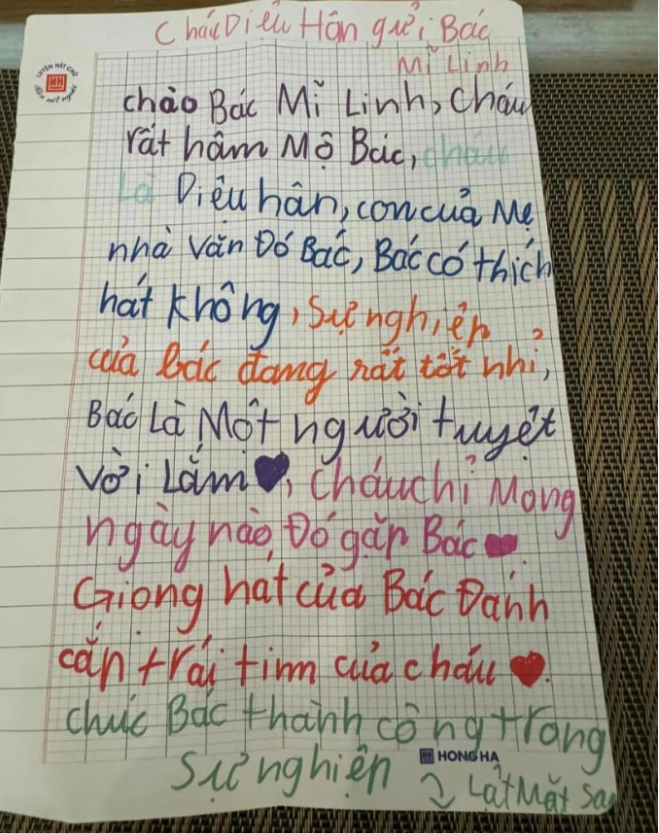 Cháu Diệu Hân gửi Bác
Mĩ Linh
LUYỆN NÉT CHỮ
RÈN NẾT NGƯỜI
chào Bác Mĩ Linh, Cháu
rất hâm Mộ Bác, cháu
Là Diệu hân, con của Mẹ
nhà văn Đó Bác, Bác có thích
hát không, Sự nghiệp
của bác đang rất tốt nhỉ,
Bác Là Một người tuyệt
vời Lắm, Cháu chỉ Mong
ngày nào Đó gặp Bác
Giọng hát của Bác Đánh
cắp trái tim của cháu.
chúc Bác thành công trong
Sự nghiệp
HONG HA
Lật Mặt Sa